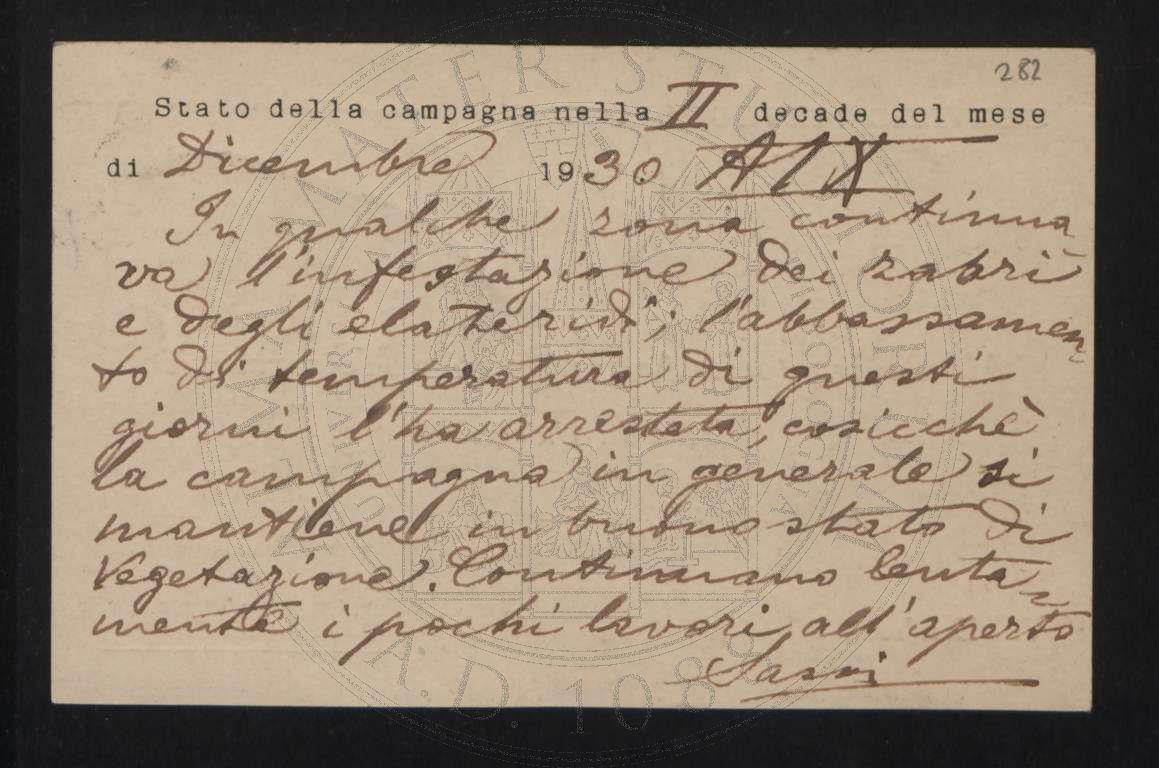 282
Stato della campagna nella II decade del mese
di Dicembre 1930 A IX
In qualche zona continua-
va l'infestazione dei zabri
e degli elateridi; l'abbassamen-
to di temperatura di questi
giorni l'ha arrestata, cosicchè
la campagna in generale si
mantiene in buono stato di
vegetazione. Continuano lenta-
mente i pochi lavori, all'aperto
ALMA MATER STUDIORUM
A.D. 1088